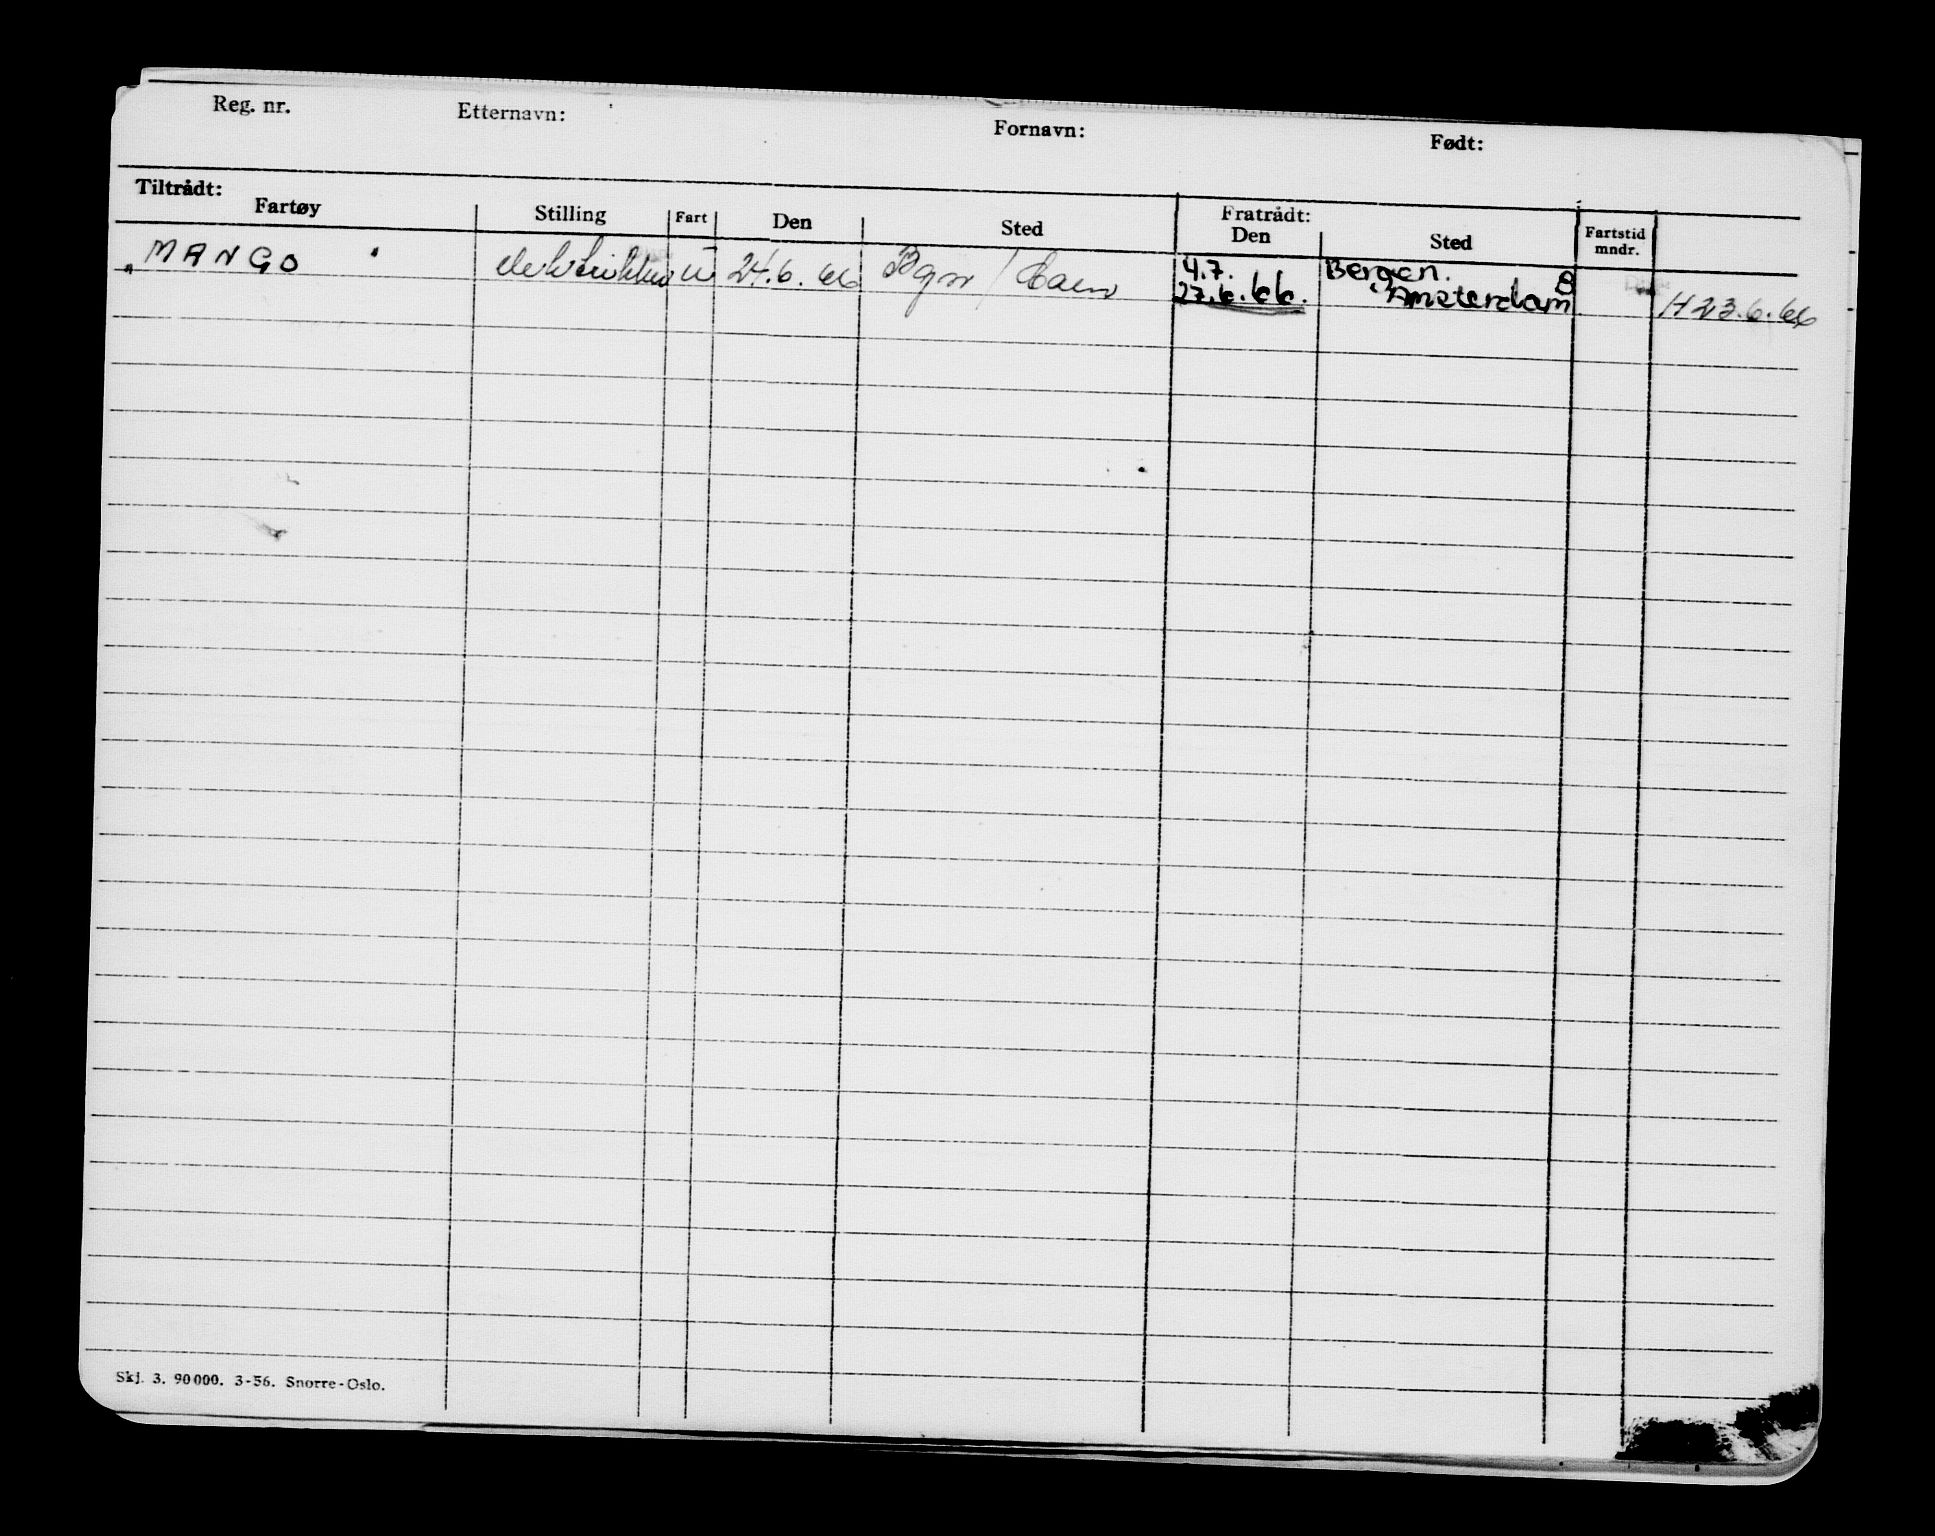 Reg. nr. Etternavn: Fornavn: Født:
Tiltrådt: Fratrådt:
Fartøy Stilling Fart Den Sted Den Sted Fartstid mndr.
"MANGO" elektriker U 24.6.66 Bgn / Caen 4.7. Bergen.
27.6.66. Amsterdam H 23.6.66
Skj. 3. 90 000. 3-56. Snorre-Oslo.